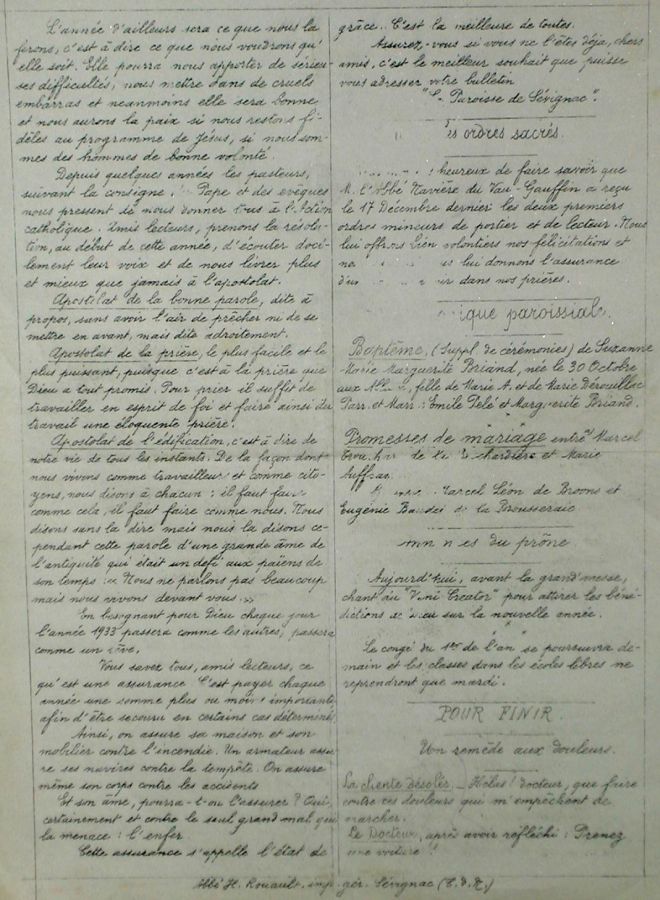 L'année d'ailleurs sera ce que nous la
ferons, c'est à dire ce que nous voudrons qu'
elle soit. Elle pourra nous apporter de sérieu-
ses difficultés, nous mettre dans de cruels
embarras et neanmoins elle sera bonne
et nous aurons la paix si nous restons fi-
dèles au programme de Jésus, si nous som-
mes des hommes de bonne volonté.
Depuis quelques années les pasteurs,
suivant la consigne Pape et des evêques
nous pressent de nous donner tous à l'Action
catholique. Amis lecteurs, prenons la résolu-
tion, au début de cette année, d'écouter doci-
lement leur voix et de nous livrer plus
et mieux que jamais à l'apostolat.
Apostolat de la bonne parole, dite à
propos, sans avoir l'air de prêcher ni de se
mettre en avant, mais dite adroitement.
Apostolat de la prière, le plus facile et le
plus puissant, puisque c'est à la prière que
Dieu a tout promis. Pour prier il suffit de
travailler en esprit de foi et faire ainsi du
travail une éloquente prière.
Apostolat de l'édification, c'est à dire de
notre vie de tous les instants. De la façon dont
nous vivons comme travailleurs et comme cito-
yens, nous disons à chacun : il faut faire
comme cela, il faut faire comme nous. Nous
disons sans la dire mais nous la disons ce-
pendant cette parole d'une grande âme de
l'antiquité qui était un defi aux païens de
son temps : « Nous ne parlons pas beaucoup
mais nous vivons devant vous. »
En besognant pour Dieu chaque jour
l'année 1933 passera comme les autres, passera
comme un rêve.
Vous savez tous, amis lecteurs, ce
qu'est une assurance C'est payer chaque
année une somme plus ou moins importante
afin d'être secouru en certains cas déterminés
Ainsi, on assure sa maison et son
mobilier contre l'incendie. Un armateur assu-
re ses navires contre la tempête. On assure
même son corps contre les accidents
Et son âme, pourra-t-on l'assurer ? Oui,
certainement et contre le seul grand mal qui
la menace : l'enfer.
Cette assurance s'appelle l'état de
grâce.. C'est la meilleure de toutes.
Assurez-vous si vous ne l'êtes déja, chers
amis, c'est le meilleur souhait que puisse
vous adresser votre bulletin
Paroisse de Sévignac".
es ordres sacrés.
heureux de faire savoir que
M. l'Abbé Navière du Vau-Gauffin a reçu
le 17 Décembre dernier les deux premiers
ordres mineurs de portier et de lecteur. Nous
lui offrons bien volontiers nos félicitations et
lui donnons l'assurance
dans nos prières.
ique paroissiale.
Baptême, (Suppl. de cérémonies) de Suzanne
Marie Marguerite Briand, née le 30 Octobre
aux fille de Marie A. et de Marie Dérouillac
Parr. et Marr : Emile Pelé et Marguerite Briand.
Promesses de mariage entre Marcel
et Marie
Auffray.
Marcel Léon de Broons et
Eugénie de la Brousseraie
du prône.
Aujourd'hui, avant la grand'messe,
chant du "Veni Creator" pour attirer les béné-
dictions de Dieu sur la nouvelle année.
Le congé du 1er de l'an se poursuivra de-
main et les classes dans les écoles libres ne
reprendront que mardi.
POUR FINIR.
Un remède aux douleurs.
La cliente désolée. _ Hélas ! docteur, que faire
contre ces douleurs qui m'empêchent de
marcher.
Le Docteur, après avoir réfléchi : Prenez
une voiture !
Abbé H. Rouault. imp. gér. Sévignac (C.d.N.)